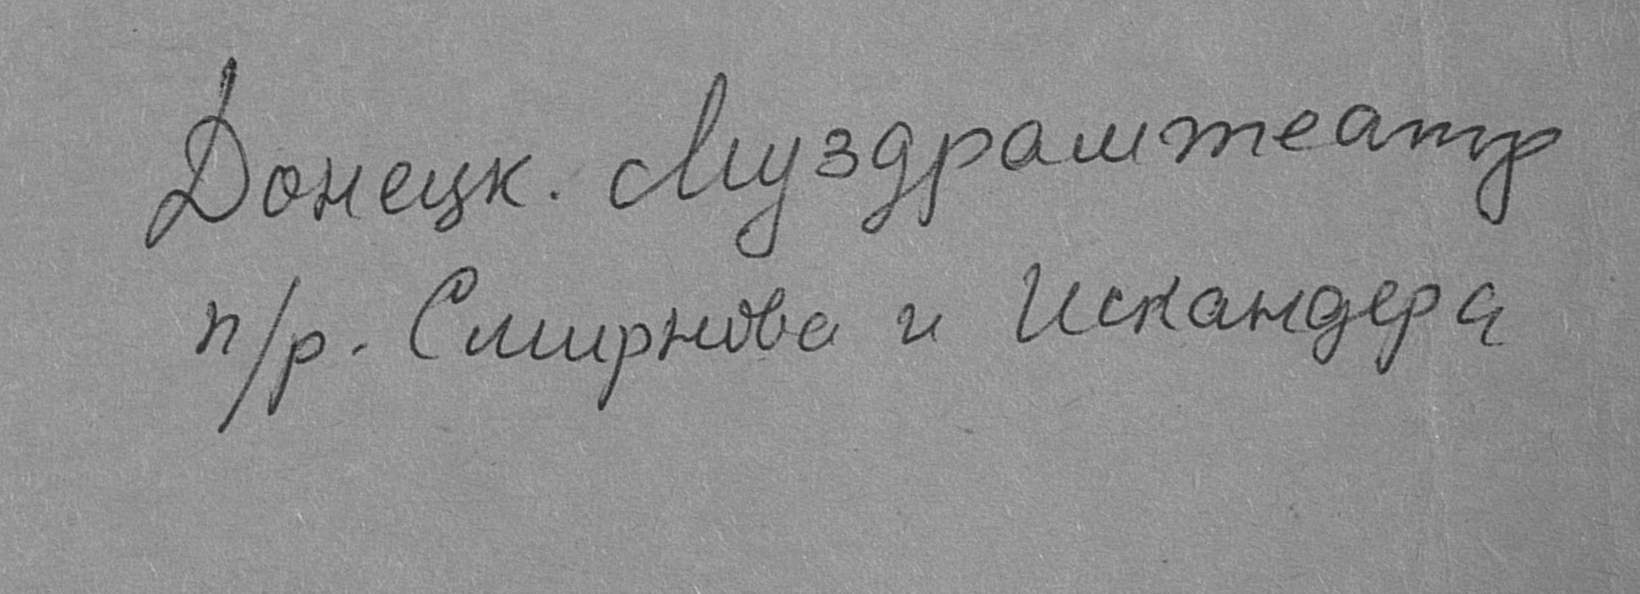 Донецк. Муздрамтеатр
п/р. Смирнова и Искандера